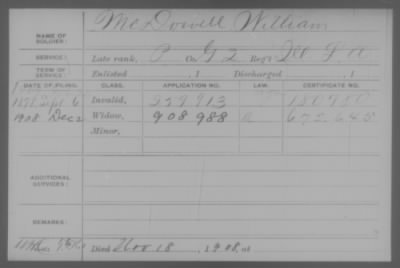 McDowell William
NAME OF
SOLDIER:
SERVICE: Late rank, P Co. G 2 Reg't Ill L A
TERM OF
SERVICE: Enlisted , 1 Discharged , 1
DATE OF FILING. CLASS. APPLICATION NO. LAW. CERTIFICATE NO.
Sept 6 Invalid, 259913
1908 Dec 2 Widow, 908 988 672.645
Minor,
ADDITIONAL
SERVICES:
REMARKS:
Died Nov 18, 1908, at